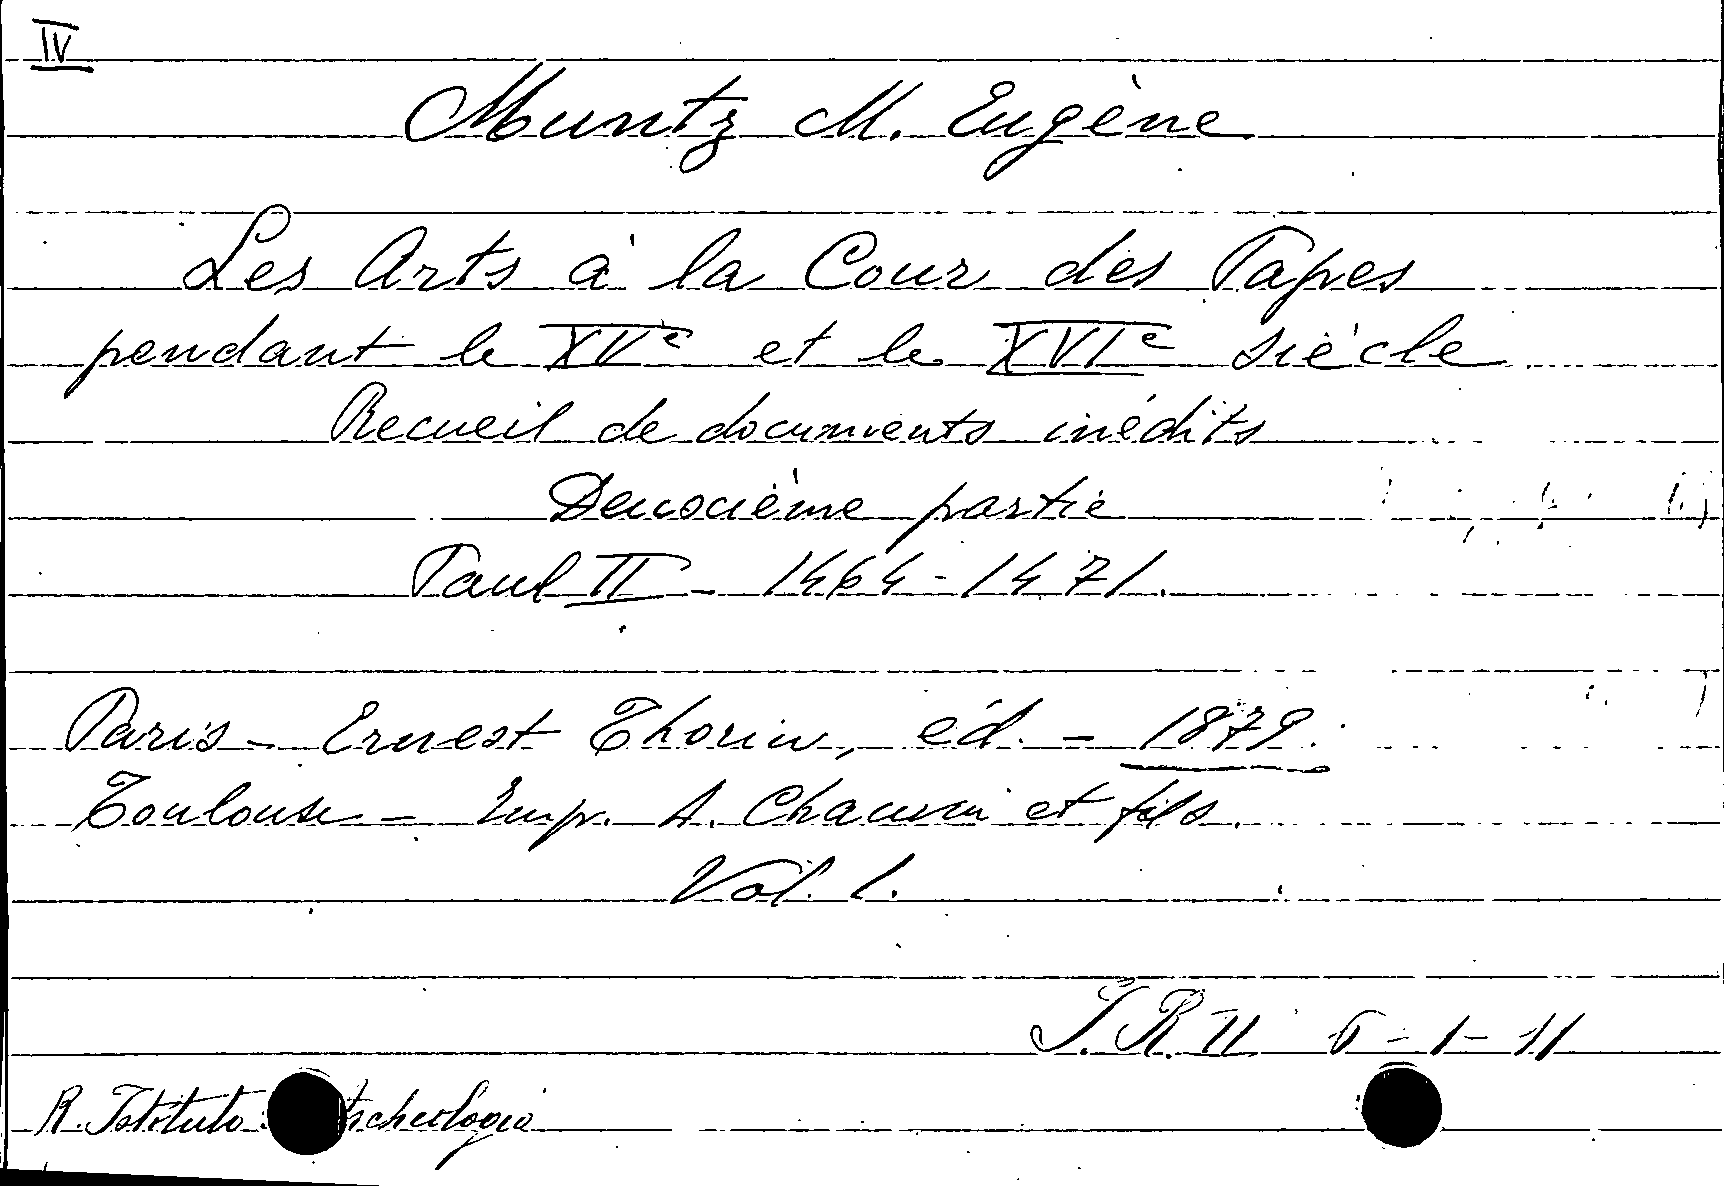 IV
Muntz M. Eugène
Les Arts à la Cour des Papes
pendant le XVe et le XVIe siècle
Recueil de documents inédits
Deuxième partie
Paul II - 1464-1471.
Paris - Ernest Thorin, éd. - 1879.
Toulouse - Imp. A. Chauvin et fils.
Vol. 1.
S.R. II 6-1-11
R. Istituto Archeologia